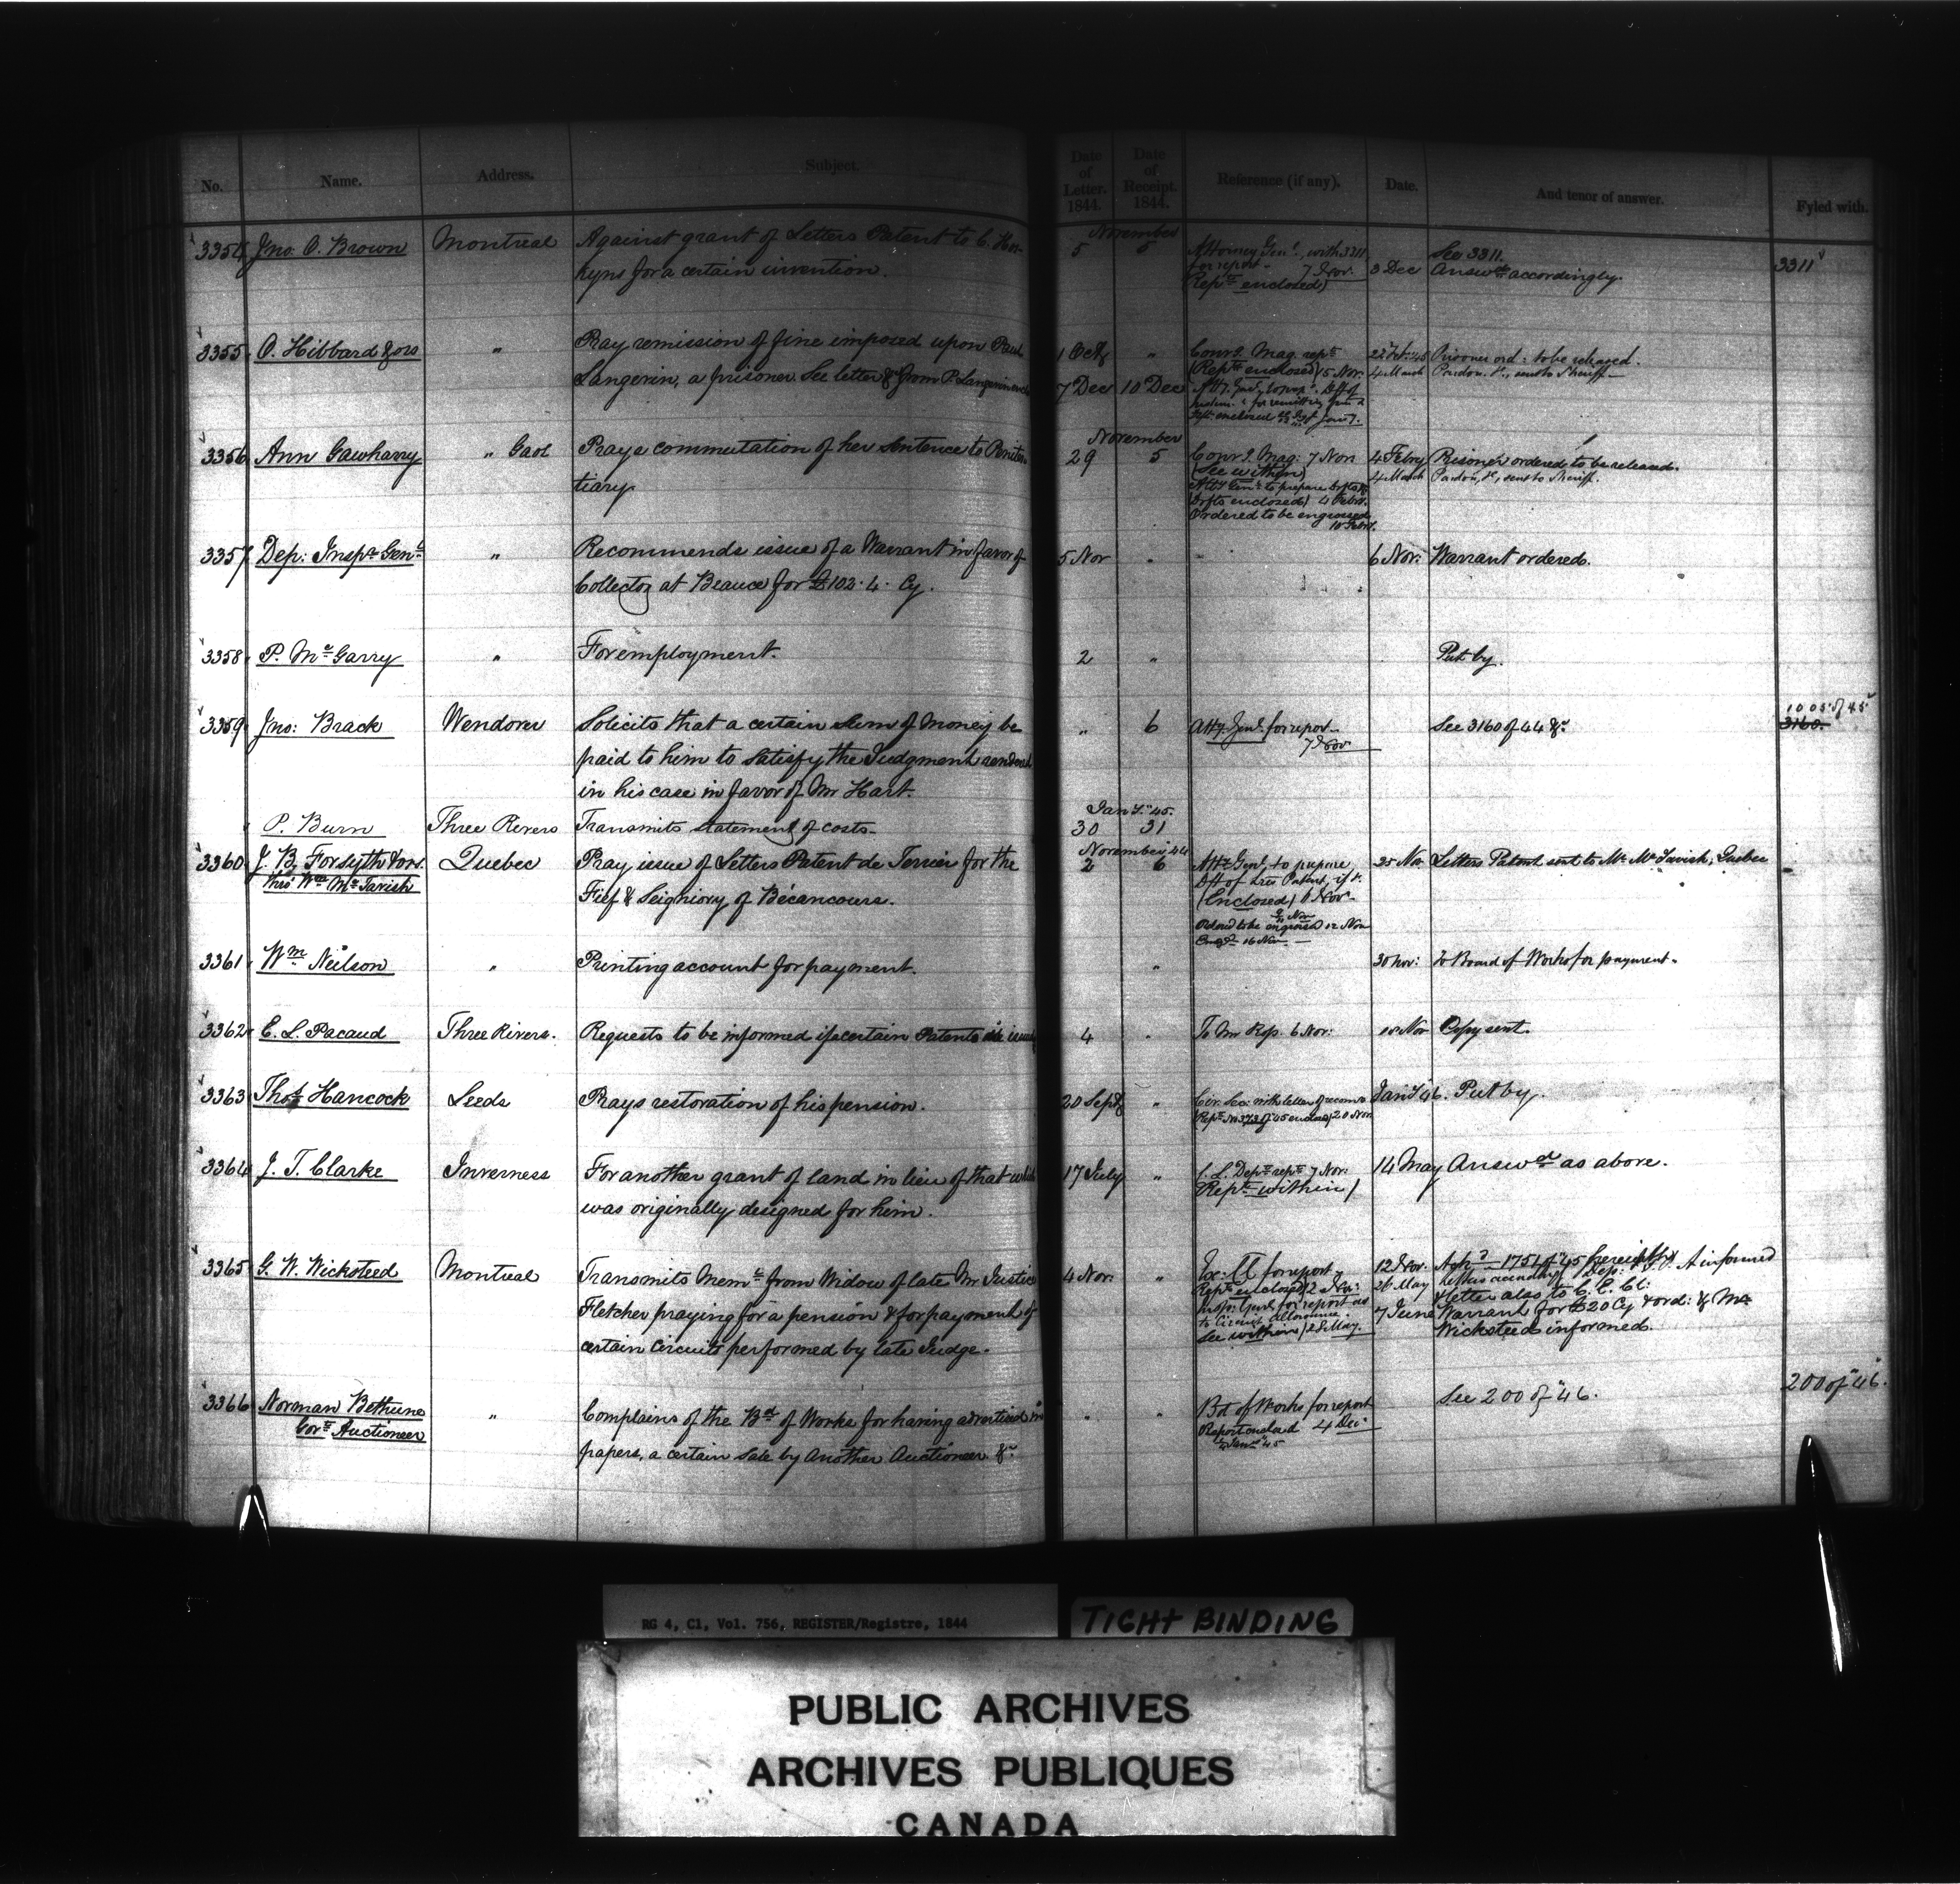 No. Name. Address. Subject. Date of Letter. 1844. Date of Receipt. 1844. Reference (if any). Date. And tenor of answer. Fyled with.
November
3354 Jno. O. Brown Montreal Against grant of Letters Patent to C. Hos- 5 5 Attorney Genl. with 3311 See 3311. 3311
kyns for a certain invention. for report - 7 Nov. 3 Dec Answd accordingly.
Rept enclosed)
3355 O. Hibbard & ors " Pray remission of fine imposed upon Paul 1 Oct " Convg. Mag. rept 22 Feb: 45 Prisoner ord: to be released.
Langevin, a prisoner. See letter &c from P. Langevin 7 Dec 10 Dec (Rept enclosed) 5 Nov. 4 March Pardon &c, sent to Sheriff -
November
3356 Ann Gawharry " Gaol Prays commutation of her sentence to Peniten- 29 5 Convg. Mag: 7 Nov 4 Febry Prisoner ordered to be released.
tiary (See within) 4 March Pardon, &c, sent to Sheriff.
Atty Genl to prepare Drfts &c
(Drfts enclosed) 4 Febry.
Ordered to be engrossed
10 Febry.
3357 Dep: Inspr Genl " Recommends issue of a Warrant in favor of 5 Nov " 6 Nov: Warrant ordered.
Collector at Beauce for £102. 4. Cy.
3358 P. Mc Garry " For employment. 2 " Put by.
3359 Jno: Brack Wendover Solicits that a certain Sum of Money be " 6 Atty. Genl. for report - See 3160 of 44 &c. 1005 of 45
paid to him to satisfy the Judgment rendered 7 Nov 3160.
in his case in favor of Mr Hart.
Jany. 45.
P. Burn Three Rivers Transmits statement of costs. 30 31
November 44
3360 J. B. Forsyth & ors. Quebec Pray issue of Letters Patent de Terrier for the 2 6 Atty Genl. to prepare 25 Nov Letters Patent sent to Mr McTavish, Quebec
thro' Wm McTavish Fief & Seigniory of Bécancours. Dft of Ltrs Patent, if &c.
(Enclosed) 6 Nov
Ordered to be engrossed 12 Nov
16 Nov. -
3361 Wm Neilson " Printing account for payment. " 30 Nov: To Board of Works for payment.
3362 E. L. Pacaud Three Rivers. Requests to be informed if a certain Patent 4 " To Mr Reg. 6 Nov: Nov Copy sent.
3363 Thos. Hancock Leeds Prays restoration of his pension. 20 Sept " Civ. Sec: with letter of recomn Jany 46. Put by.
Rept No 373 of 45 enclosed 20 Nov
3364 J. T. Clarke Inverness For another grant of land in lieu of that which 17 July " C. L. Dept rept 7 Nov: 14 May Answd as above.
was originally designed for him. Rept within)
3365 G. W. Wicksteed Montreal Transmits Meml from Widow of late Mr Justice 4 Nov. " Ex: Cl for report - 12 Nov. 1751 of 45 informed
Fletcher praying for a pension & for payment of Rept enclosed) 2 Nov: 26 May & letter also to C. C. Cl:
certain circuits performed by late Judge. Insp: Genl for report as 7 June Warrant for £20 Cy & ord: & Mr
to Circuit Allowance. Wicksteed informed.
See within) 28 May.
3366 Norman Bethune " Complains of the Bd of Works for having advertised in " " Bd of Works for report See 200 of "46. 200 of "46.
Govt Auctioneer papers, a certain sale by Another Auctioneer &c. Report enclosed 4 Dec
Jany 45
RG 4, C1, Vol. 756, REGISTER/Registre, 1844
TIGHT BINDING
PUBLIC ARCHIVES
ARCHIVES PUBLIQUES
CANADA